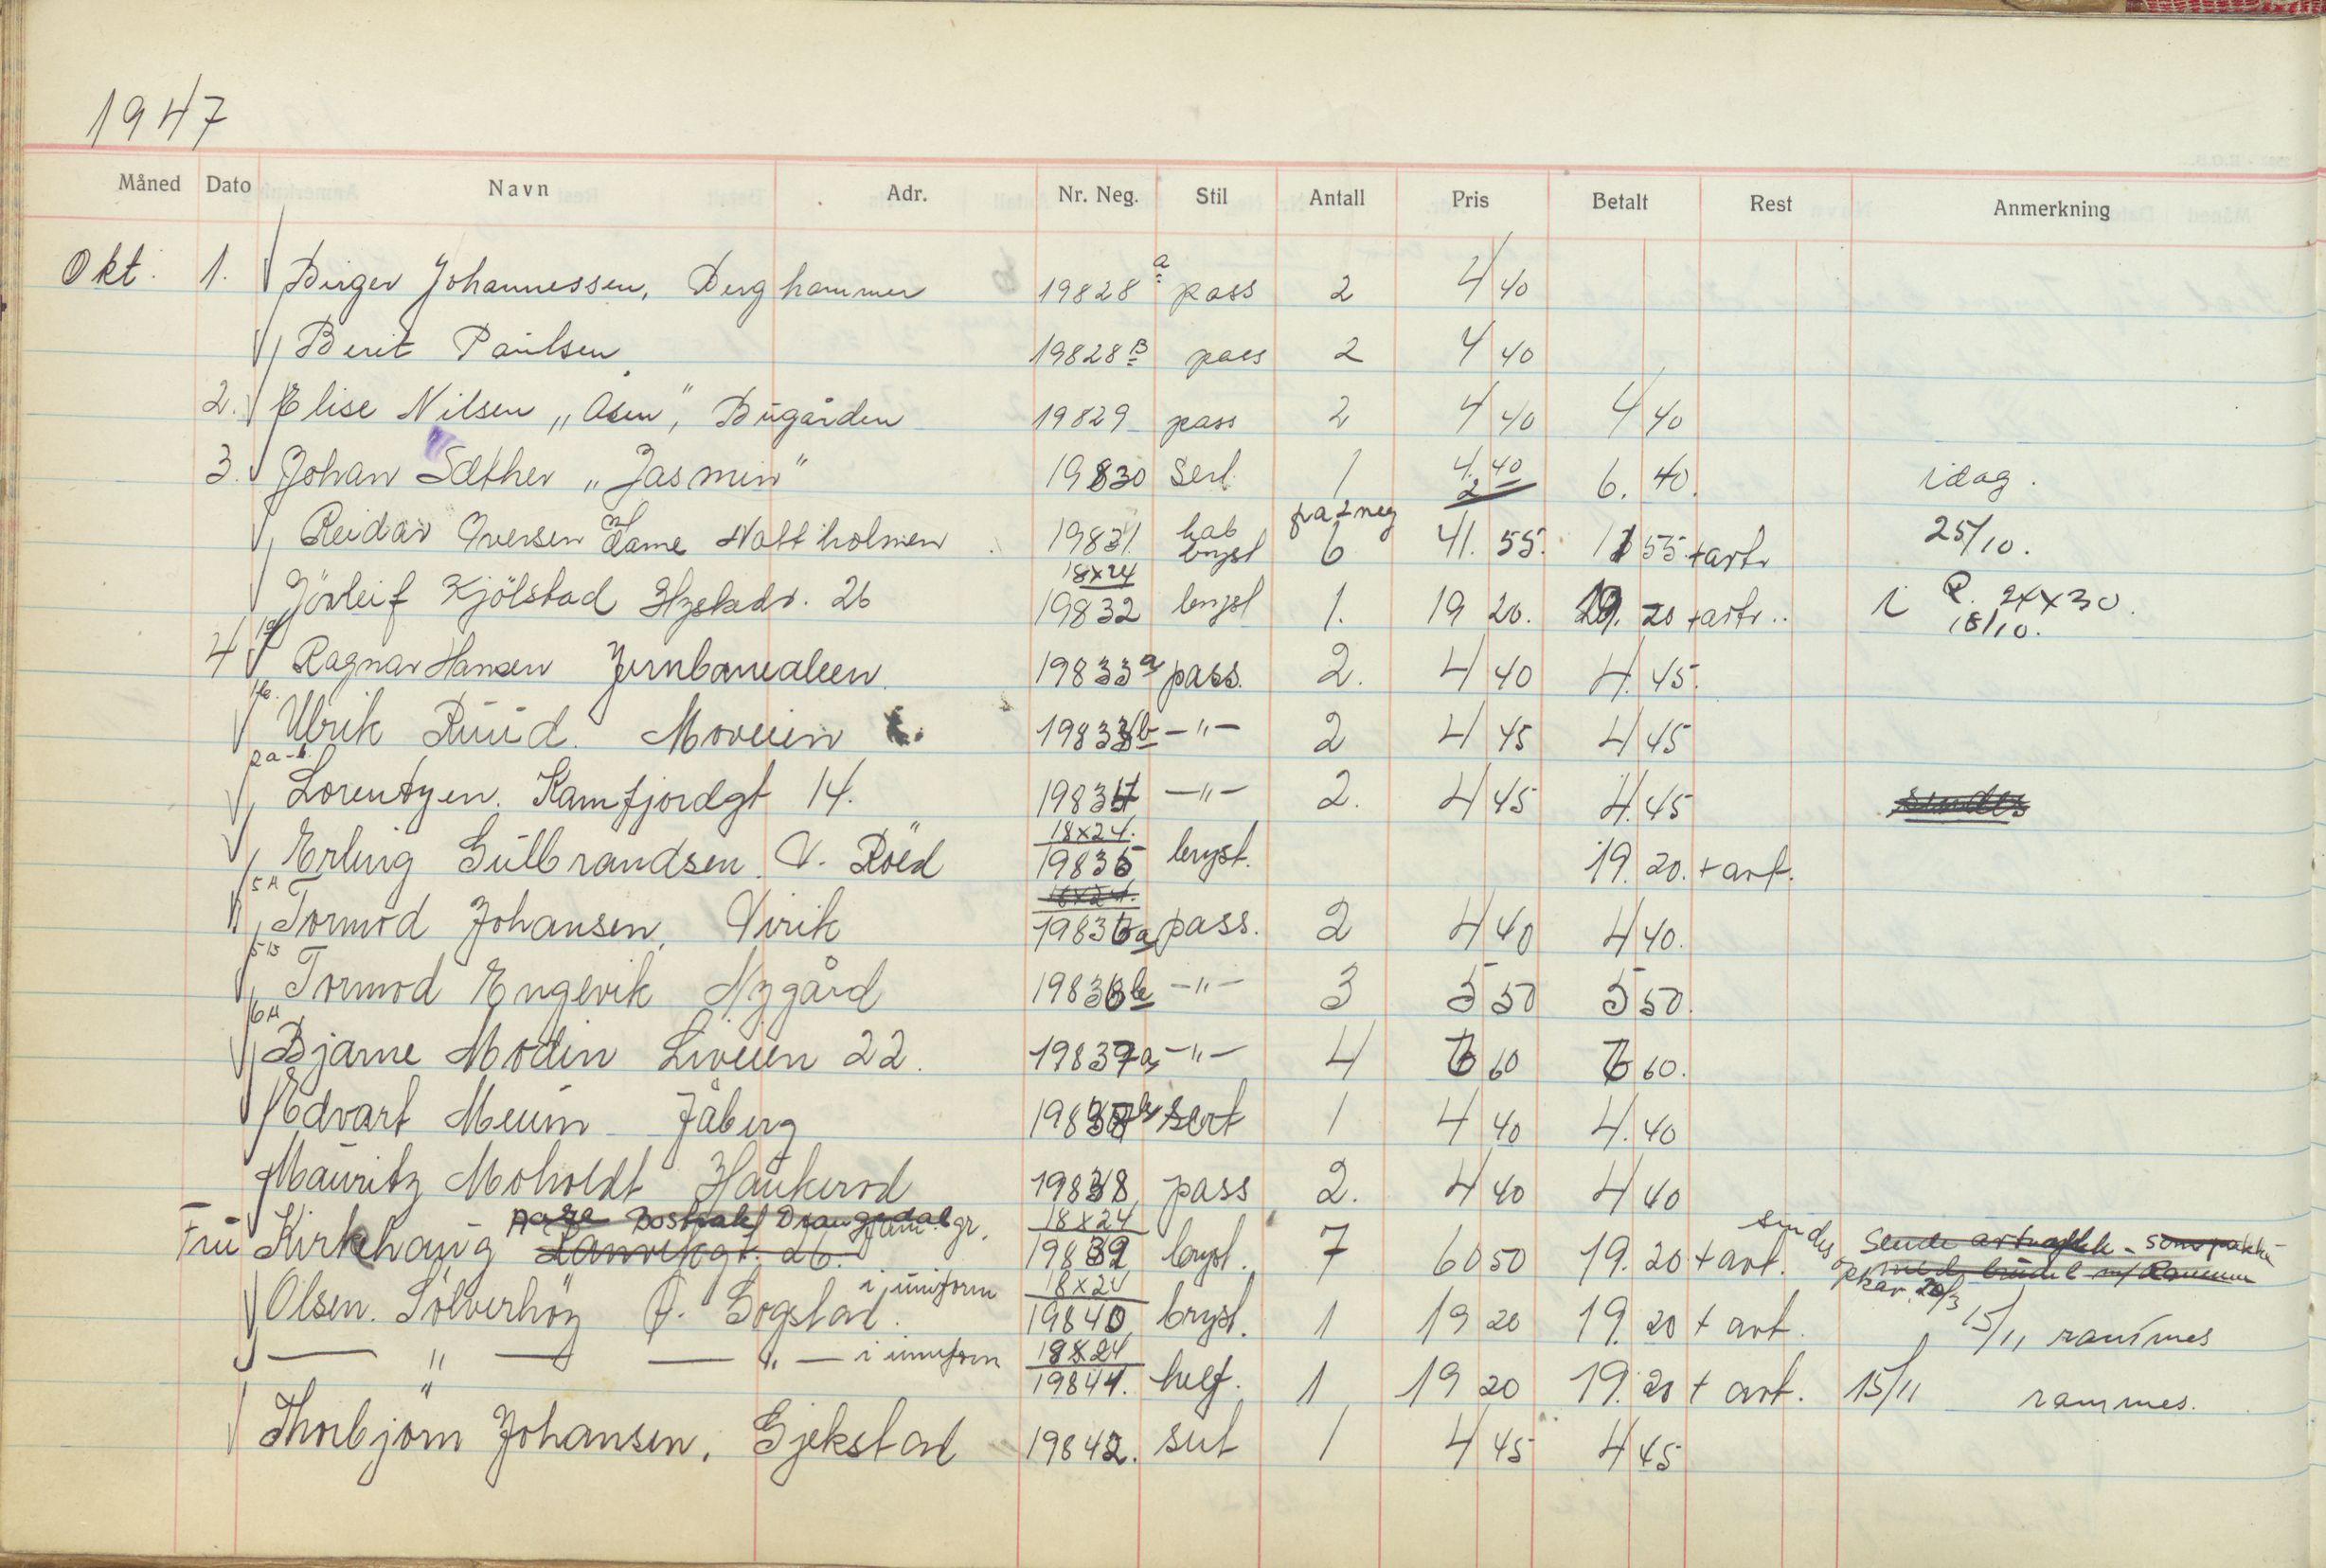 1947
Måned Dato Navn Adr. Nr. Neg. Stil Antall Pris Betalt Rest Anmerkning
Okt. 1. Birger Johannessen, Berghammer 19828 a pass 2 4 40
Berit Paulsen 19828 B pass 2 4 40
2. Elise Nilsen „Asen", Bugården 19829 pass 2 4 40 4 40
3. Johan Sæther „Jasmin" 19830 Serl. 1 4.40 2 6. 40. idag.
på 2 neg
Reidar Iversen m/ Dame Natt holmen 19831. kab bryst 6 41. 55. 11 55 + artr 25/10.
18x24
Jörleif Kjölstad 26 19832 bryst 1. 19 20. 19. 20 + artr.. i P. 24x30.
18/10.
4 1a Ragnar Hansen Jernbanealeen. 19833 a pass. 2. 4 40 4. 45.
1b. Ulrik Ruud. Moveien 19833 b —"— 2 4 45 4 45
2 a-b. Lorentzen. Kamfjordgt 14. 19834 —"— 2. 4 45 4.45 sendes
18x24.
Erling Gulbrandsen. V. Röed 19835 bryst. 19. 20. + art.
18x24.
5A Tormod Johansen, Virik 19836a pass. 2 4 40 4 40.
5B Tormod Engevik Nygård 19836b —"— 3 5 50 5 50.
6A Bjarne Modin Liveien 22. 19837a —"— 4 6 60 6 60.
Edvart Meum Jåberg 19837b sert 1 4 40 4.40
Mauritz Moholdt Haukerod 19838 pass 2. 4 40 4 40
Drangedal gr. 18x24
Fru Kirkehaug Lanvikgt. 26. 19839 bryst. 7 60 50 19. 20 + art. sendes
i uniform 18x24 20/3
Olsen. Sölverhöy Ø. Gogstad. 19840 bryst. 1 19 20 19. 20 + art. 15/11 rammes
—"— —"— i uniform 18x24
19841. helf. 1 19 20 19. 20 + art. 15/11 rammes.
Thorbjörn Johansen, Gjekstad 19842. sert 1 4 45 4 45